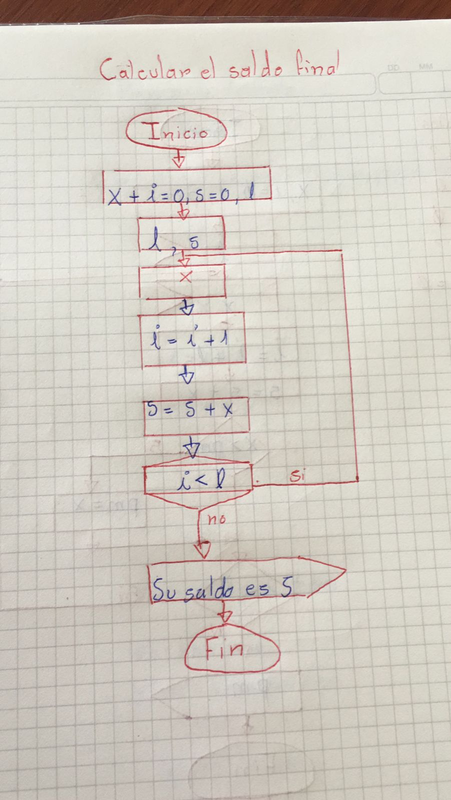 Calcular el saldo final
Inicio
X + i=0, s=0, l
l, s
x
i = i + 1
S = S + X
i < l
si
no
Su saldo es S
Fin